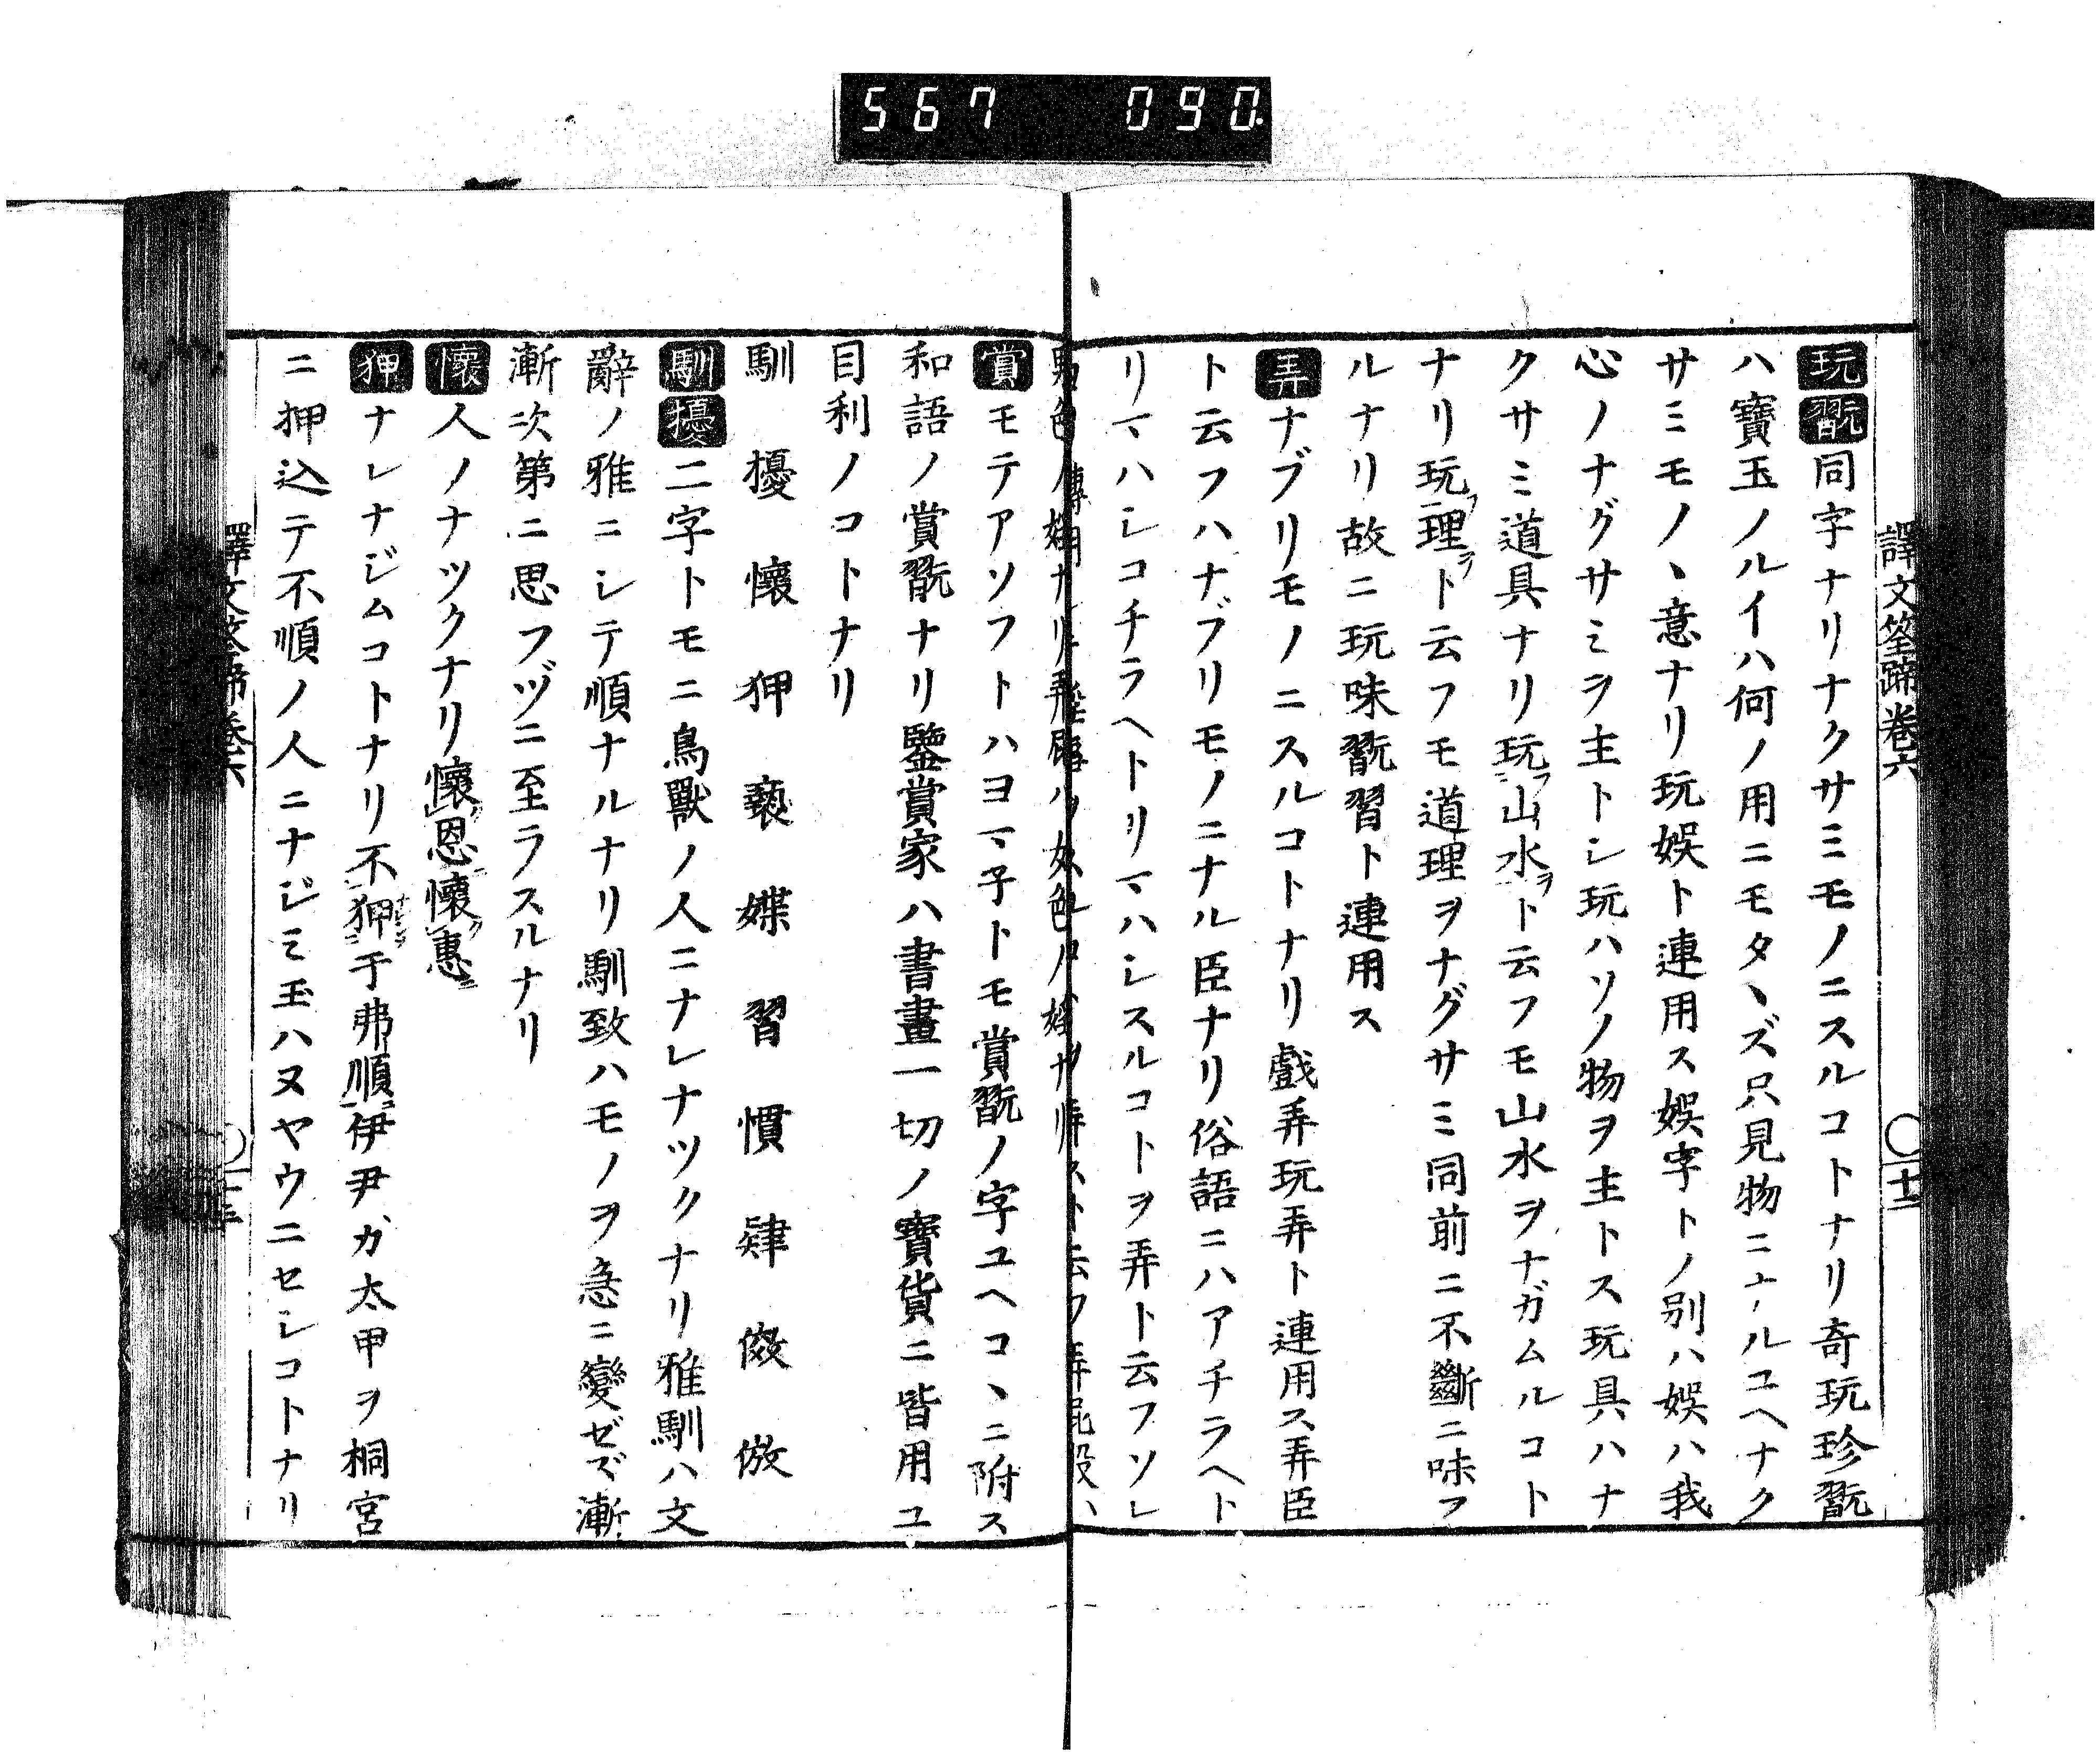 567 090.
譯文筌蹄卷六 ○十二
玩翫同字ナリナクサミモノニスルコトナリ奇玩珍翫
ハ寶玉ノルイハ何ノ用ニモタヽズ只見物ニナルユヘナク
サミモノヽ意ナリ玩娯ト連用ス娯字トノ別ハ娯ハ我
心ノナグサミヲ主トシ玩ハソノ物ヲ主トス玩具ハナ
クサミ道具ナリ玩フ山水ヲト云フモ山水ヲナガムルコト
ナリ玩フ理ヲト云フモ道理ヲナグサミ同前ニ不斷ニ味フ
ルナリ故ニ玩味翫習ト連用ス
弄ナブリモノニスルコトナリ戲弄玩弄ト連用ス弄臣
ト云フハナブリモノニナル臣ナリ俗語ニハアチラヘト
リマハシコチラヘトリマハシスルコトヲ弄ト云フソレ
賞モテアソフトハヨマ子トモ賞翫ノ字ユヘコヽニ附ス
和語ノ賞翫ナリ鑒賞家ハ書畫一切ノ寶貨ニ皆用ユ
目利ノコトナリ
馴 擾 懷 狎 褻 媟 習 慣 肄 傚 倣
馴擾二字トモニ鳥獸ノ人ニナレナツクナリ雅馴ハ文
辭ノ雅ニシテ順ナルナリ馴致ハモノヲ急ニ變ゼズ漸
漸次第ニ思フヅニ至ラスルナリ
懷人ノナツクナリ懷恩懷惠
狎ナレナジムコトナリ不狎于弗順伊尹ガ太甲ヲ桐宮
ニ押込テ不順ノ人ニナジミ玉ハヌヤウニセシコトナリ